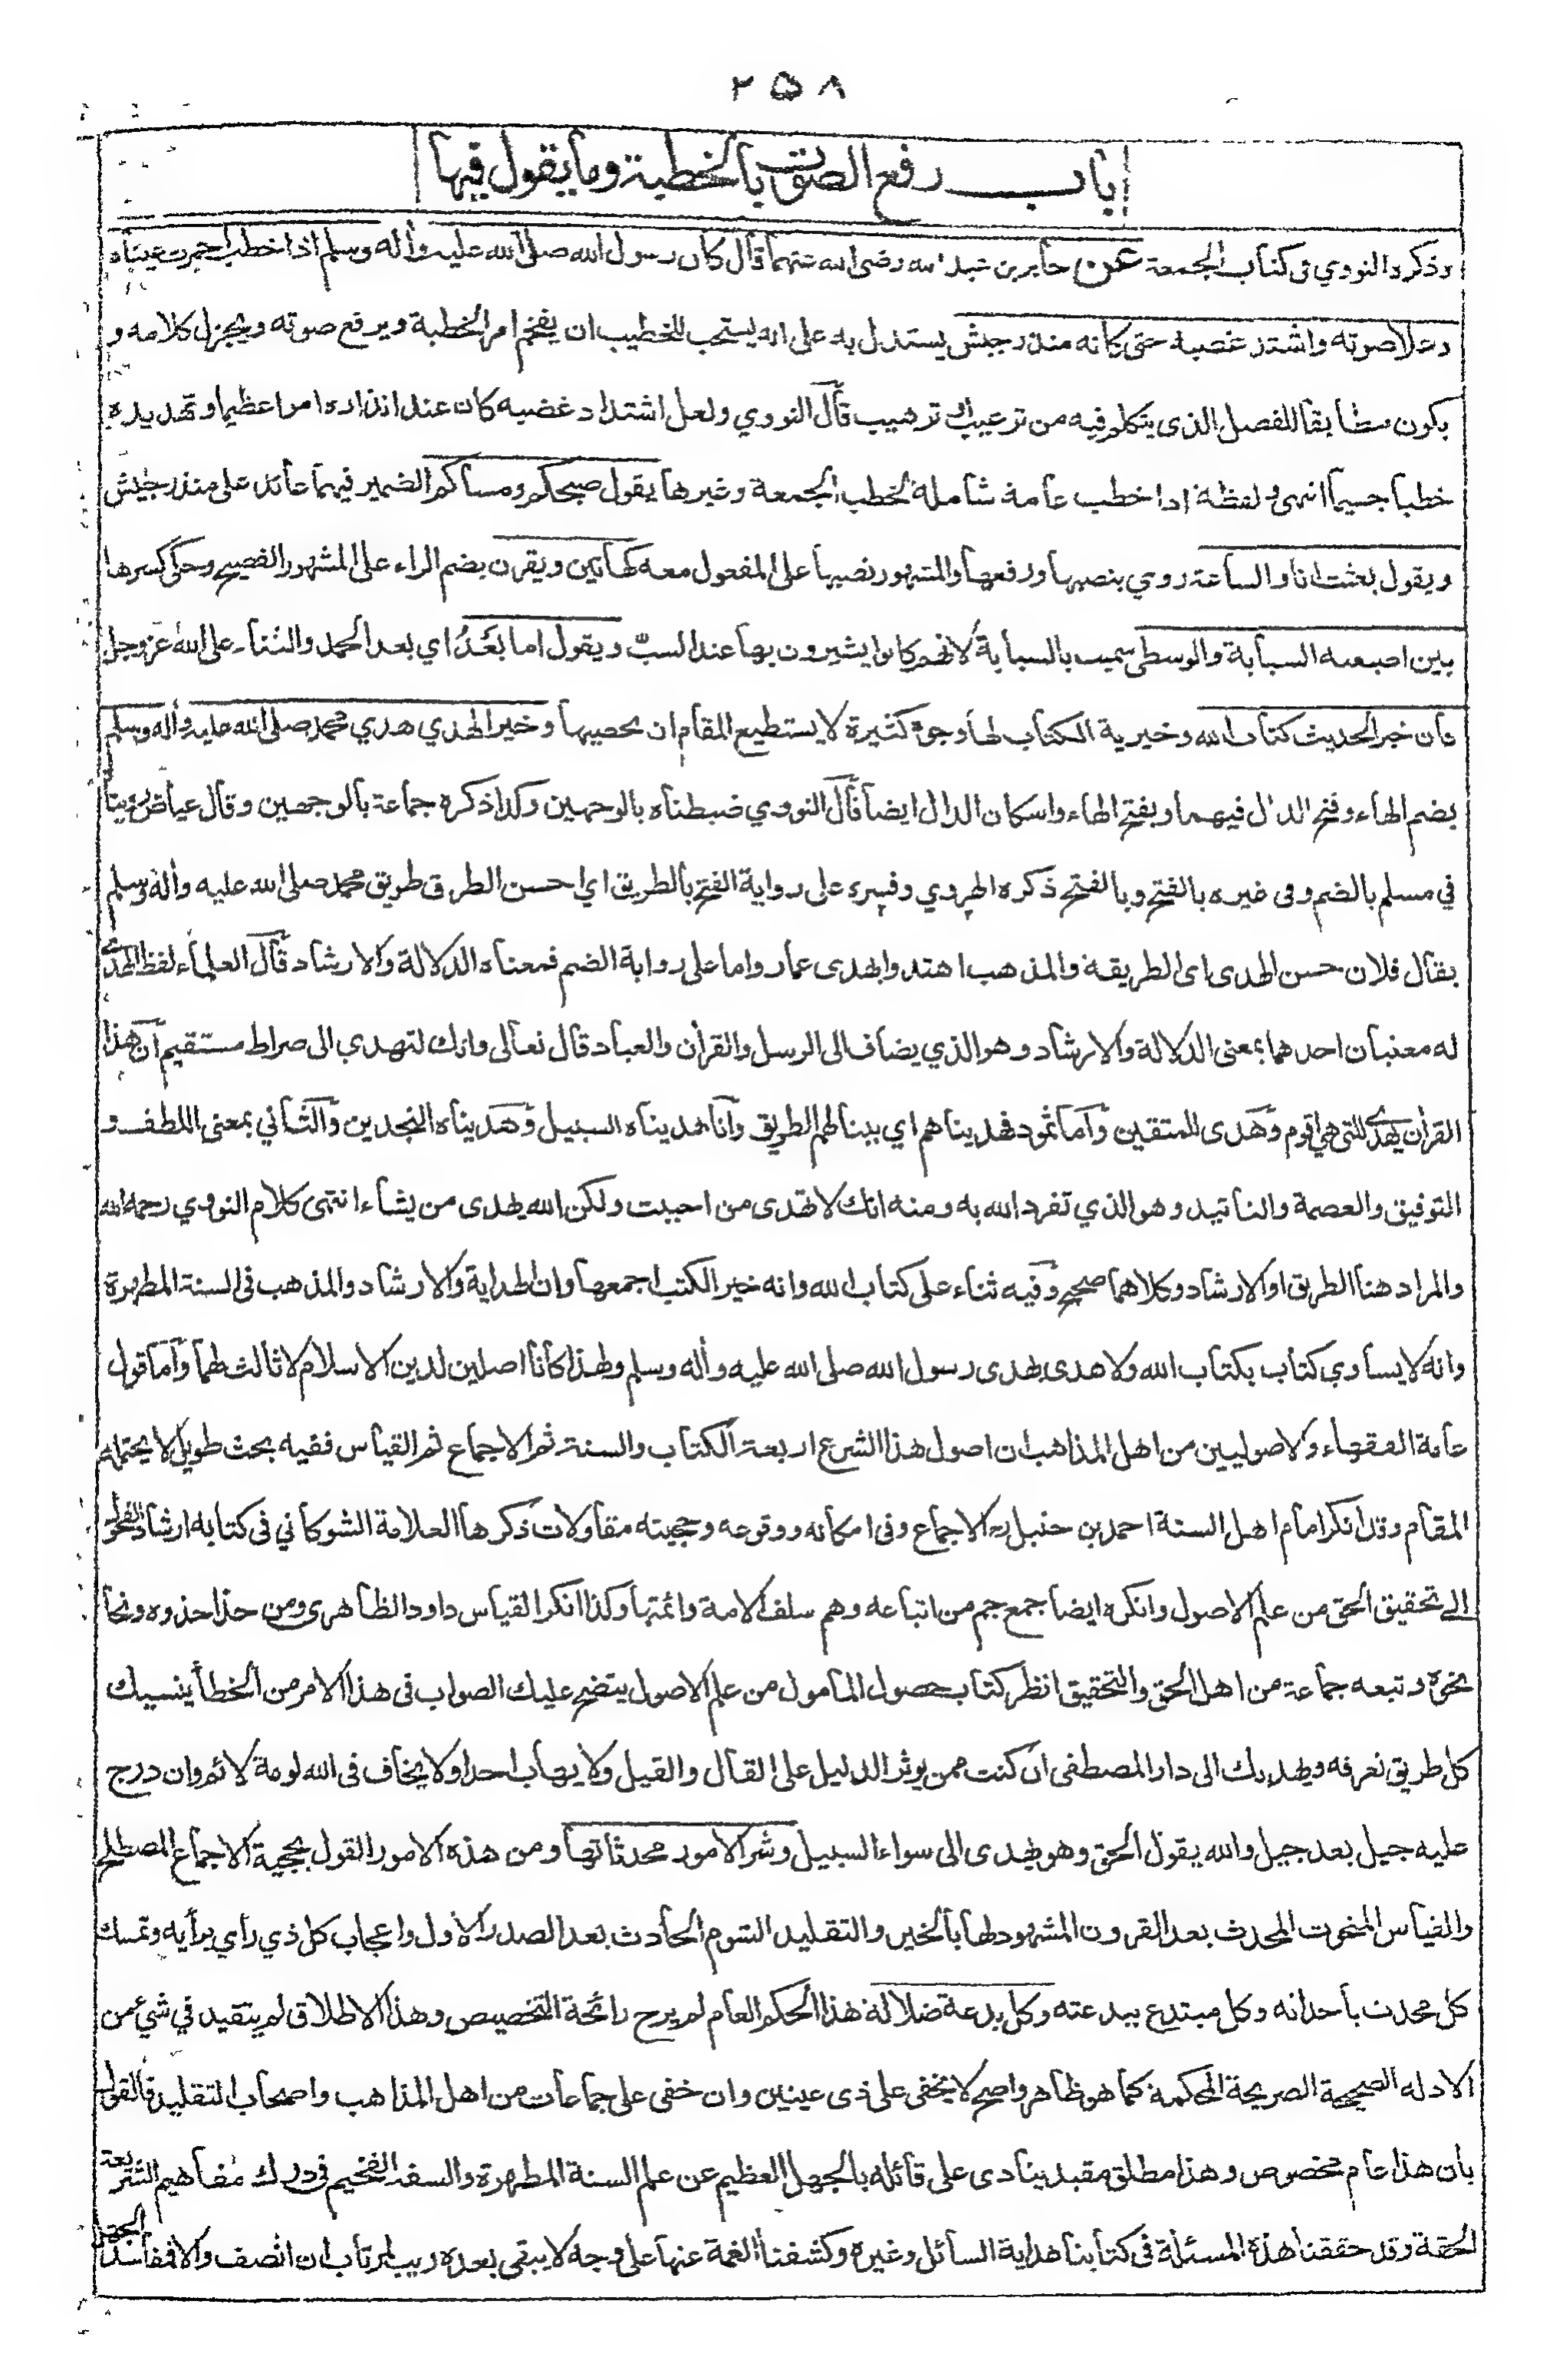 ٢٥٨
باب رفع الصوت بالخطبة وما يقول فيها
وذكره النووي في كتاب الجمعة عن جابر بن عبد الله رضى الله عنهما قال كان رسول الله صلى الله عليه وأله وسلم اذا خطب احمرت عيناه
وعلا صوته واشتد غضبه حتى كانه منذر جيش يستدل به على انه يستحب للخطيب ان يفخم امر الخطبة ويرفع صوته ويجزل كلامه و
يكون مطابقا للفصل الذى يتكلم فيه من ترغيب او ترهيب قال النووي ولعل اشتداد غضبه كان عند انذاره امرا عظيما وتهديده
خطبا جسيما انتهى ولفظة اذا خطب عامة شاملة لخطب الجمعة وغيرها يقول صبحكم ومساكم الضمير فيهما عائد على منذر جيش
ويقول بعثت انا والساعة روي بنصبها ورفعها والمشهور نصبها على المفعول معه كهاتين ويقرن بضم الراء على المشهور الفصيح وحكى كسرها
بين اصبعيه السبابة والوسطى سميت بالسبابة لانهم كانوا يشيرون بها عند السبّ ويقول اما بَعْدُ اي بعد الحمد والثناء على الله عز وجل
فان خير الحديث كتاب الله وخيرية الكتاب لها وجوه كثيرة لا يستطيع المقام ان يحصيها وخير الهدي هدي محمد صلى الله عليه وأله وسلم
بضم الهاء وفتح الدال فيهما وبفتح الهاء واسكان الدال ايضا قال النووي ضبطناه بالوجهين وكذا ذكره جماعة بالوجهين وقال عياض رويناه
في مسلم بالضم وفى غيره بالفتح وبالفتح ذكره الهروي وفسره على رواية الفتح بالطريق اي احسن الطرق طريق محمد صلى الله عليه وأله وسلم
يقال فلان حسن الهدى اى الطريقة والمذهب اهتدوا بهدى عمار واما على رواية الضم فمعناه الدلالة والارشاد قال العلماء لفظ الهدى
له معنيان احدهما بمعنى الدلالة والارشاد وهو الذي يضاف الى الرسل والقرأن والعباد قال تعالى وانك لتهدي الى صراط مستقيم ان هذا
القرأن يهدى للتي هي اقوم وهدى للمتقين واما ثمود فهديناهم اي بينا لهم الطريق وانا هديناه السبيل وهديناه النجدين والثاني بمعنى اللطف و
التوفيق والعصمة والتائيد وهو الذي تفرد الله به ومنه انك لا تهدى من احببت ولكن الله يهدى من يشاء انتهى كلام النووي رحمه الله
والمراد هنا الطريق او الارشاد وكلاهما صحيح وفيه ثناء على كتاب الله وانه خير الكتب اجمعها وان الهداية والارشاد والمذهب فى السنة المطهرة
وانه لا يساوي كتاب بكتاب الله ولا هدى بهدى رسول الله صلى الله عليه وأله وسلم ولهذا كانا اصلين لدين الاسلام لا ثالث لهما واما قول
عامة الفقهاء والاصوليين من اهل المذاهب ان اصول هذا الشرع اربعة الكتاب والسنة ثم الاجماع ثم القياس ففيه بحث طويل لا يحتمله
المقام وقد انكر امام اهل السنة احمد بن حنبل رح الاجماع وفى امكانه ووقوعه وحجيته مقاولات ذكرها العلامة الشوكاني فى كتابه ارشاد الفحول
الى تحقيق الحق من علم الاصول وانكره ايضا جمع جم من اتباعه وهم سلف الامة وائمتها وكذا انكر القياس داود الظاهرى ومن حذا حذوه ونحا
نحوه وتبعه جماعة من اهل الحق والتحقيق انظر كتاب حصول المامول من علم الاصول يتضح عليك الصواب فى هذا الامر من الخطأ ينسيك
كل طريق تعرفه ويهديك الى دار المصطفى ان كنت ممن يوثر الدليل على القال والقيل ولا يهاب احدا ولا يخاف فى الله لومة لائم وان درج
عليه جيل بعد جيل والله يقول الحق وهو يهدى الى سواء السبيل وشر الامور محدثاتها ومن هذه الامور القول بحجية الاجماع المصطلح
والقياس المنحوت المحدث بعد القرون المشهود لها بالخير والتقليد الشوم الحادث بعد الصدر الاول واعجاب كل ذي رأي برأيه وتمسك
كل محدث باحداثه وكل مبتدع ببدعته وكل بدعة ضلالة هذا الحكم العام لم يرح رائحة التخصيص وهذا الاطلاق لم يتقيد في شئ من
الادلة الصحيحة الصريحة المحكمة كما هو ظاهر واضح لا يخفى على ذى عينين وان خفى على جماعات من اهل المذاهب واصحاب التقليد فالقول
بان هذا عام مخصوص وهذا مطلق مقيد ينادى على قائله بالجهل العظيم عن علم السنة المطهرة والسفه الفخيم فى درك مفاهيم الشريعة
الحقة وقد حققنا هذه المسئلة فى كتابنا هداية السائل وغيره وكشفنا الغمة عنها على وجه لا يبقى بعده ريب لمرتاب ان انصف والا ففاسد العقل